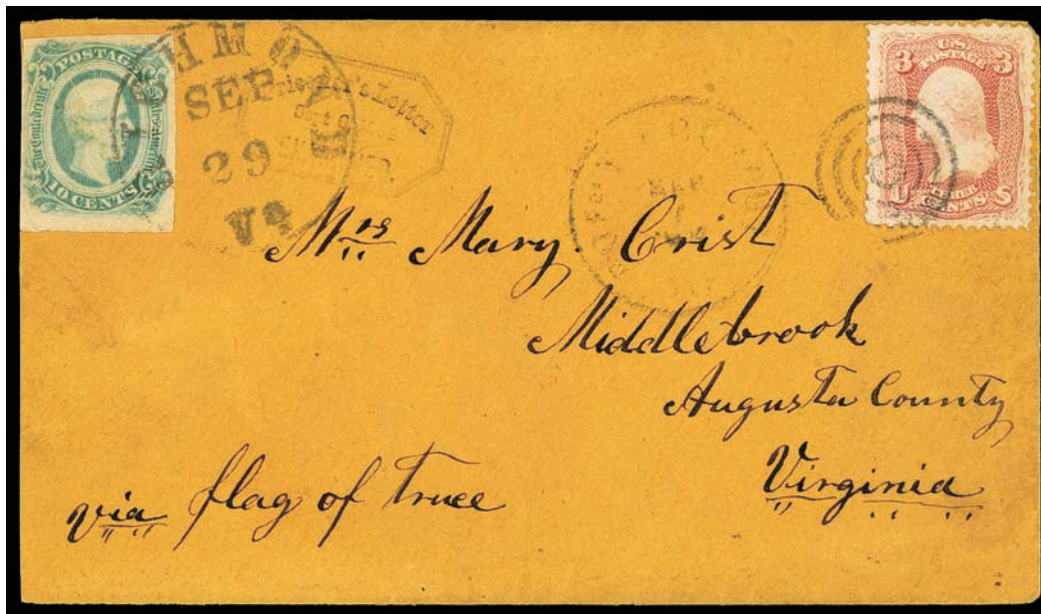 POSTAGE
The Confederate States of America
10 CENTS
RICHMOND
SEP
29
Va
Prisoner's Letter
U.S.
POSTAGE
3 3
U THREE S
CENTS
SEP
Mrs Mary Crist
Middlebrook
Augusta County
Virginia
via flag of truce